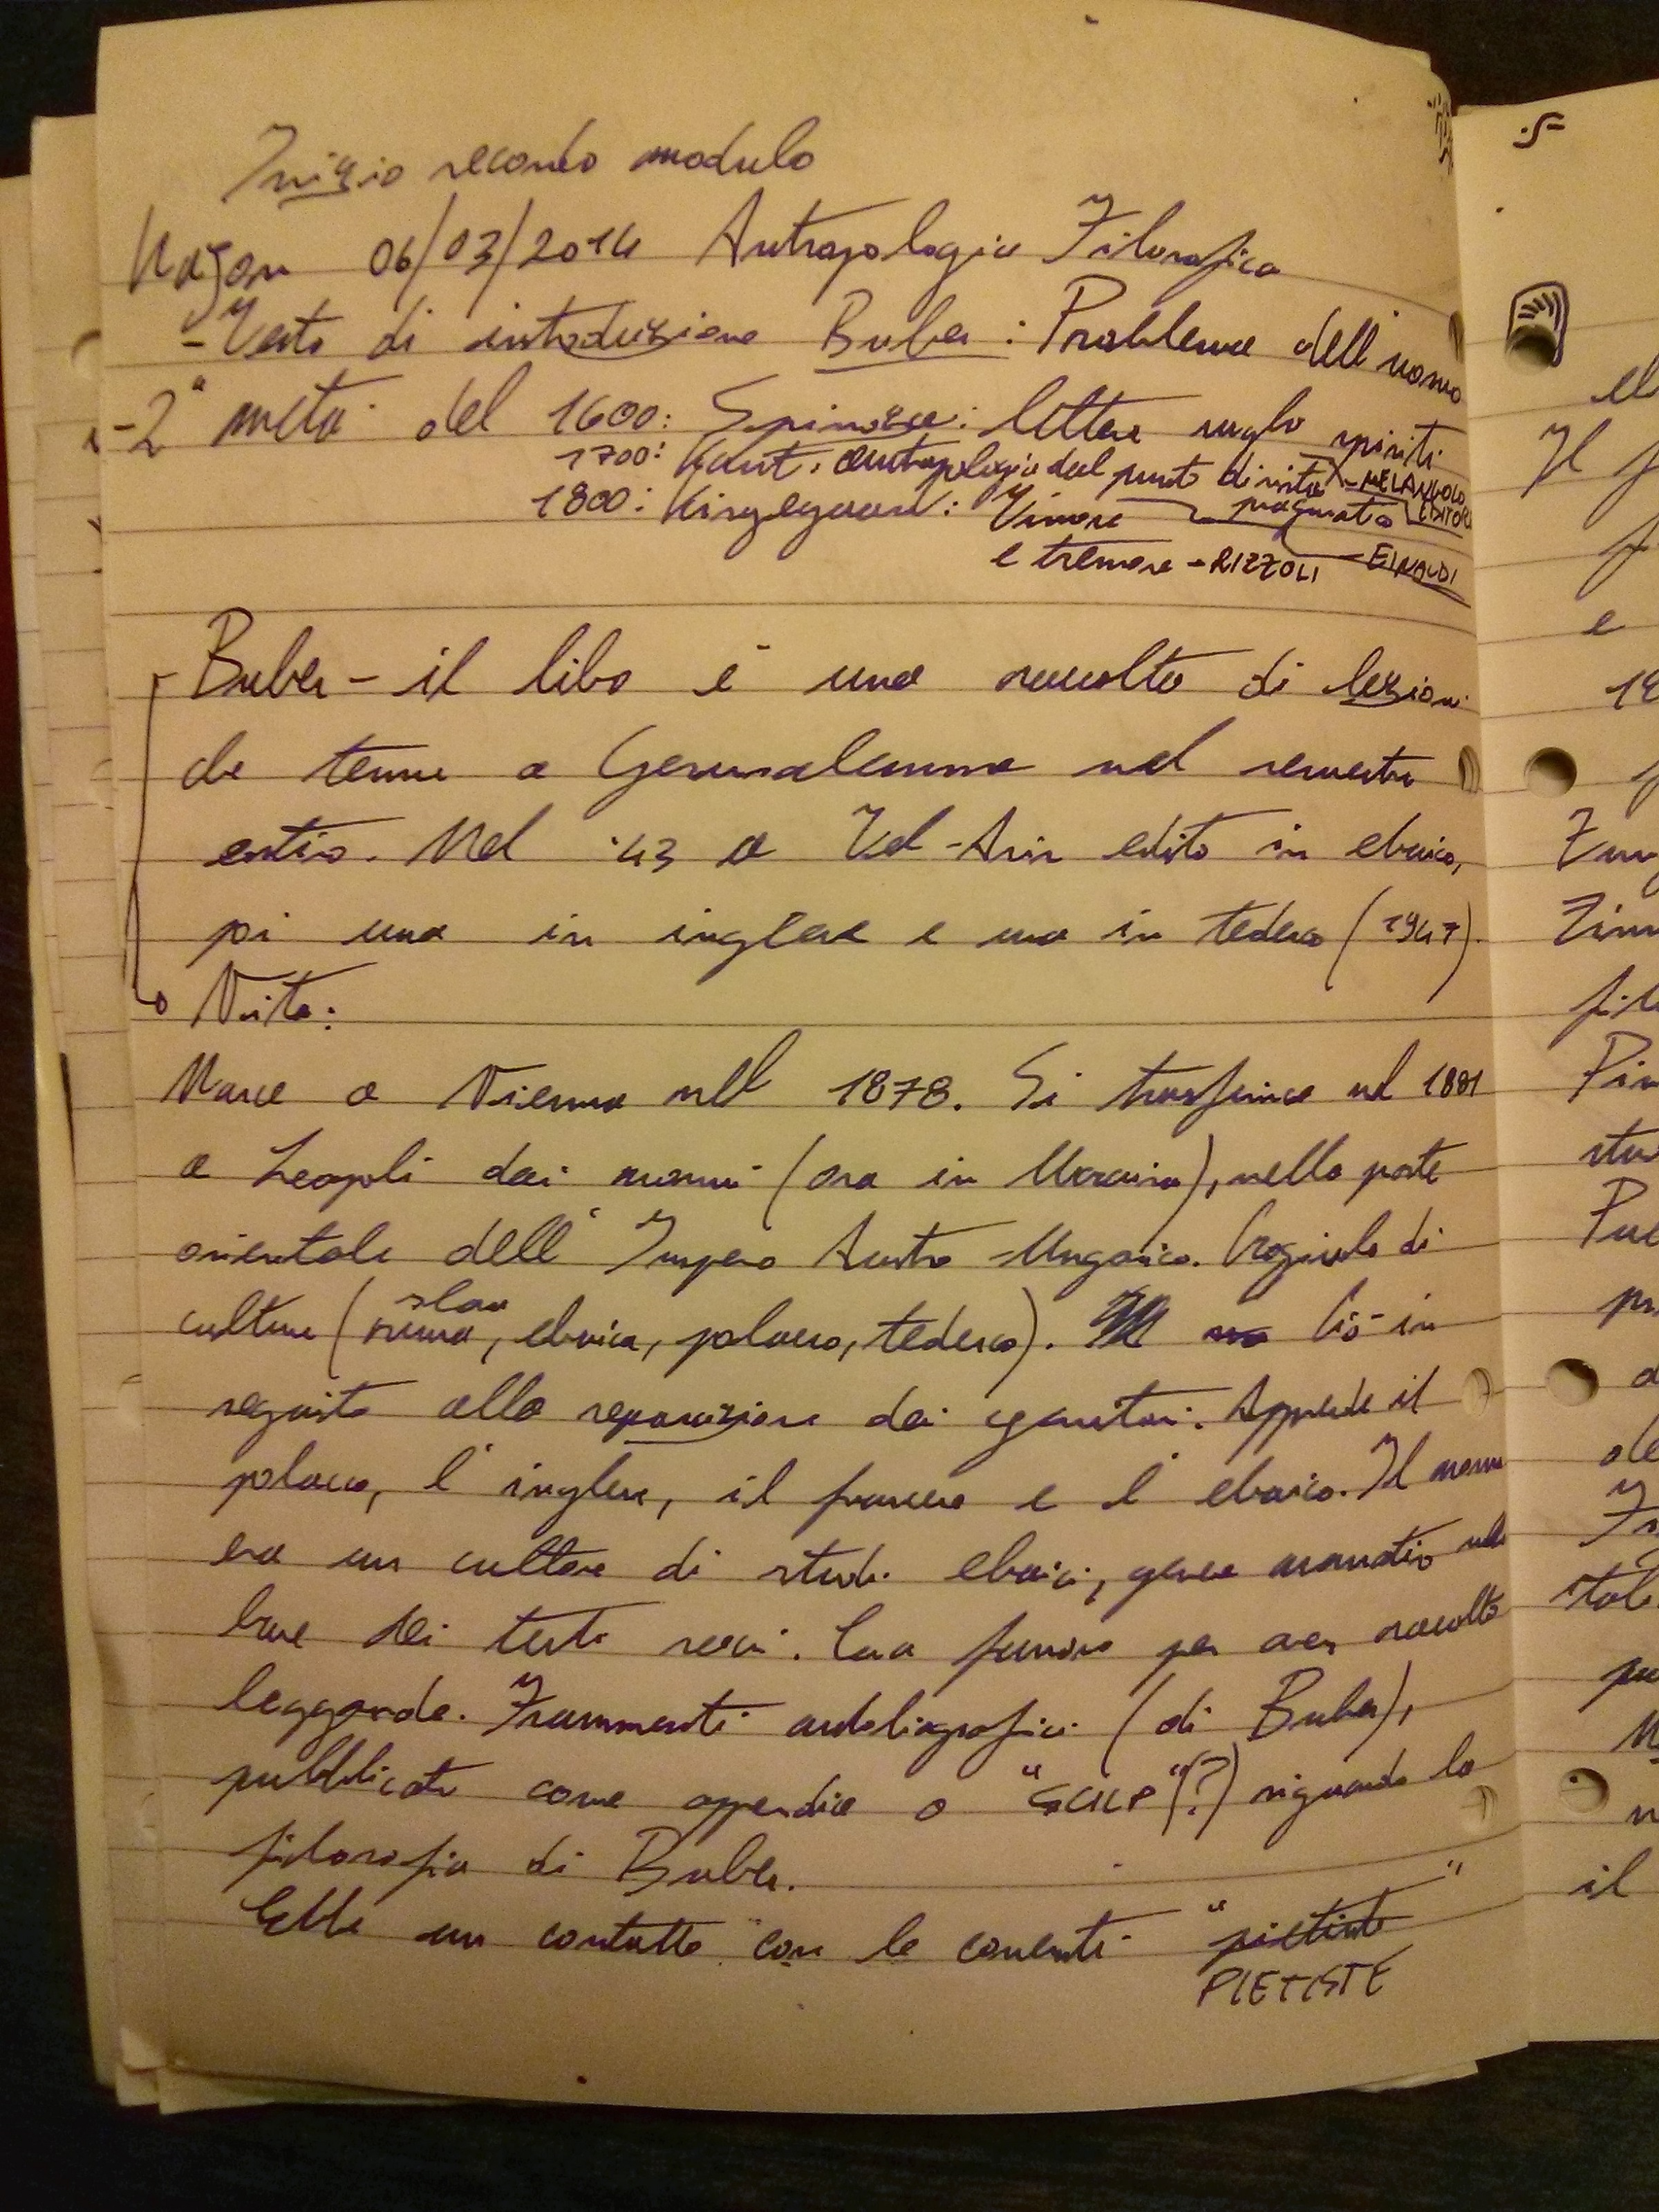 Inizio secondo modulo
06/03/2014 Antropologia Filosofica
- Testo di introduzione Buber: Problema dell'uomo
- 2ª metà del 1600: Spinoza: lettere sugli spiriti - MELANGOLO EDITORE
1700: Kant: antropologia dal punto di vista pragmatico - EINAUDI
1800: Timore
e tremore - RIZZOLI
Buber - il libro è una raccolta di lezioni
che tenne a Gerusalemme nel semestre
estivo. Nel '43 a Tel-Aviv edito in ebraico,
poi una in inglese e una in tedesco (1947).
Vita:
Nasce a Vienna nel 1878. Si trasferisce nel 1881
a Leopoli dai nonni (ora in Ucraina), nella parte
orientale dell'Impero Austro-Ungarico. Crogiuolo di
culture (slava, ebraica, polacca, tedesca). Ciò in
seguito alla separazione dei genitori. Apprende il
polacco, l'inglese, il francese e l'ebraico. Il nonno
era un cultore di studi ebraici, genere narrativo sulla
base dei testi sacri. Era famoso per aver raccolto
leggende. Frammenti autobiografici (di Buber),
pubblicati come appendice a (?) riguardo la
filosofia di Buber.
Ebbe un contatto con le correnti "pietiste"
PIETISTE
il